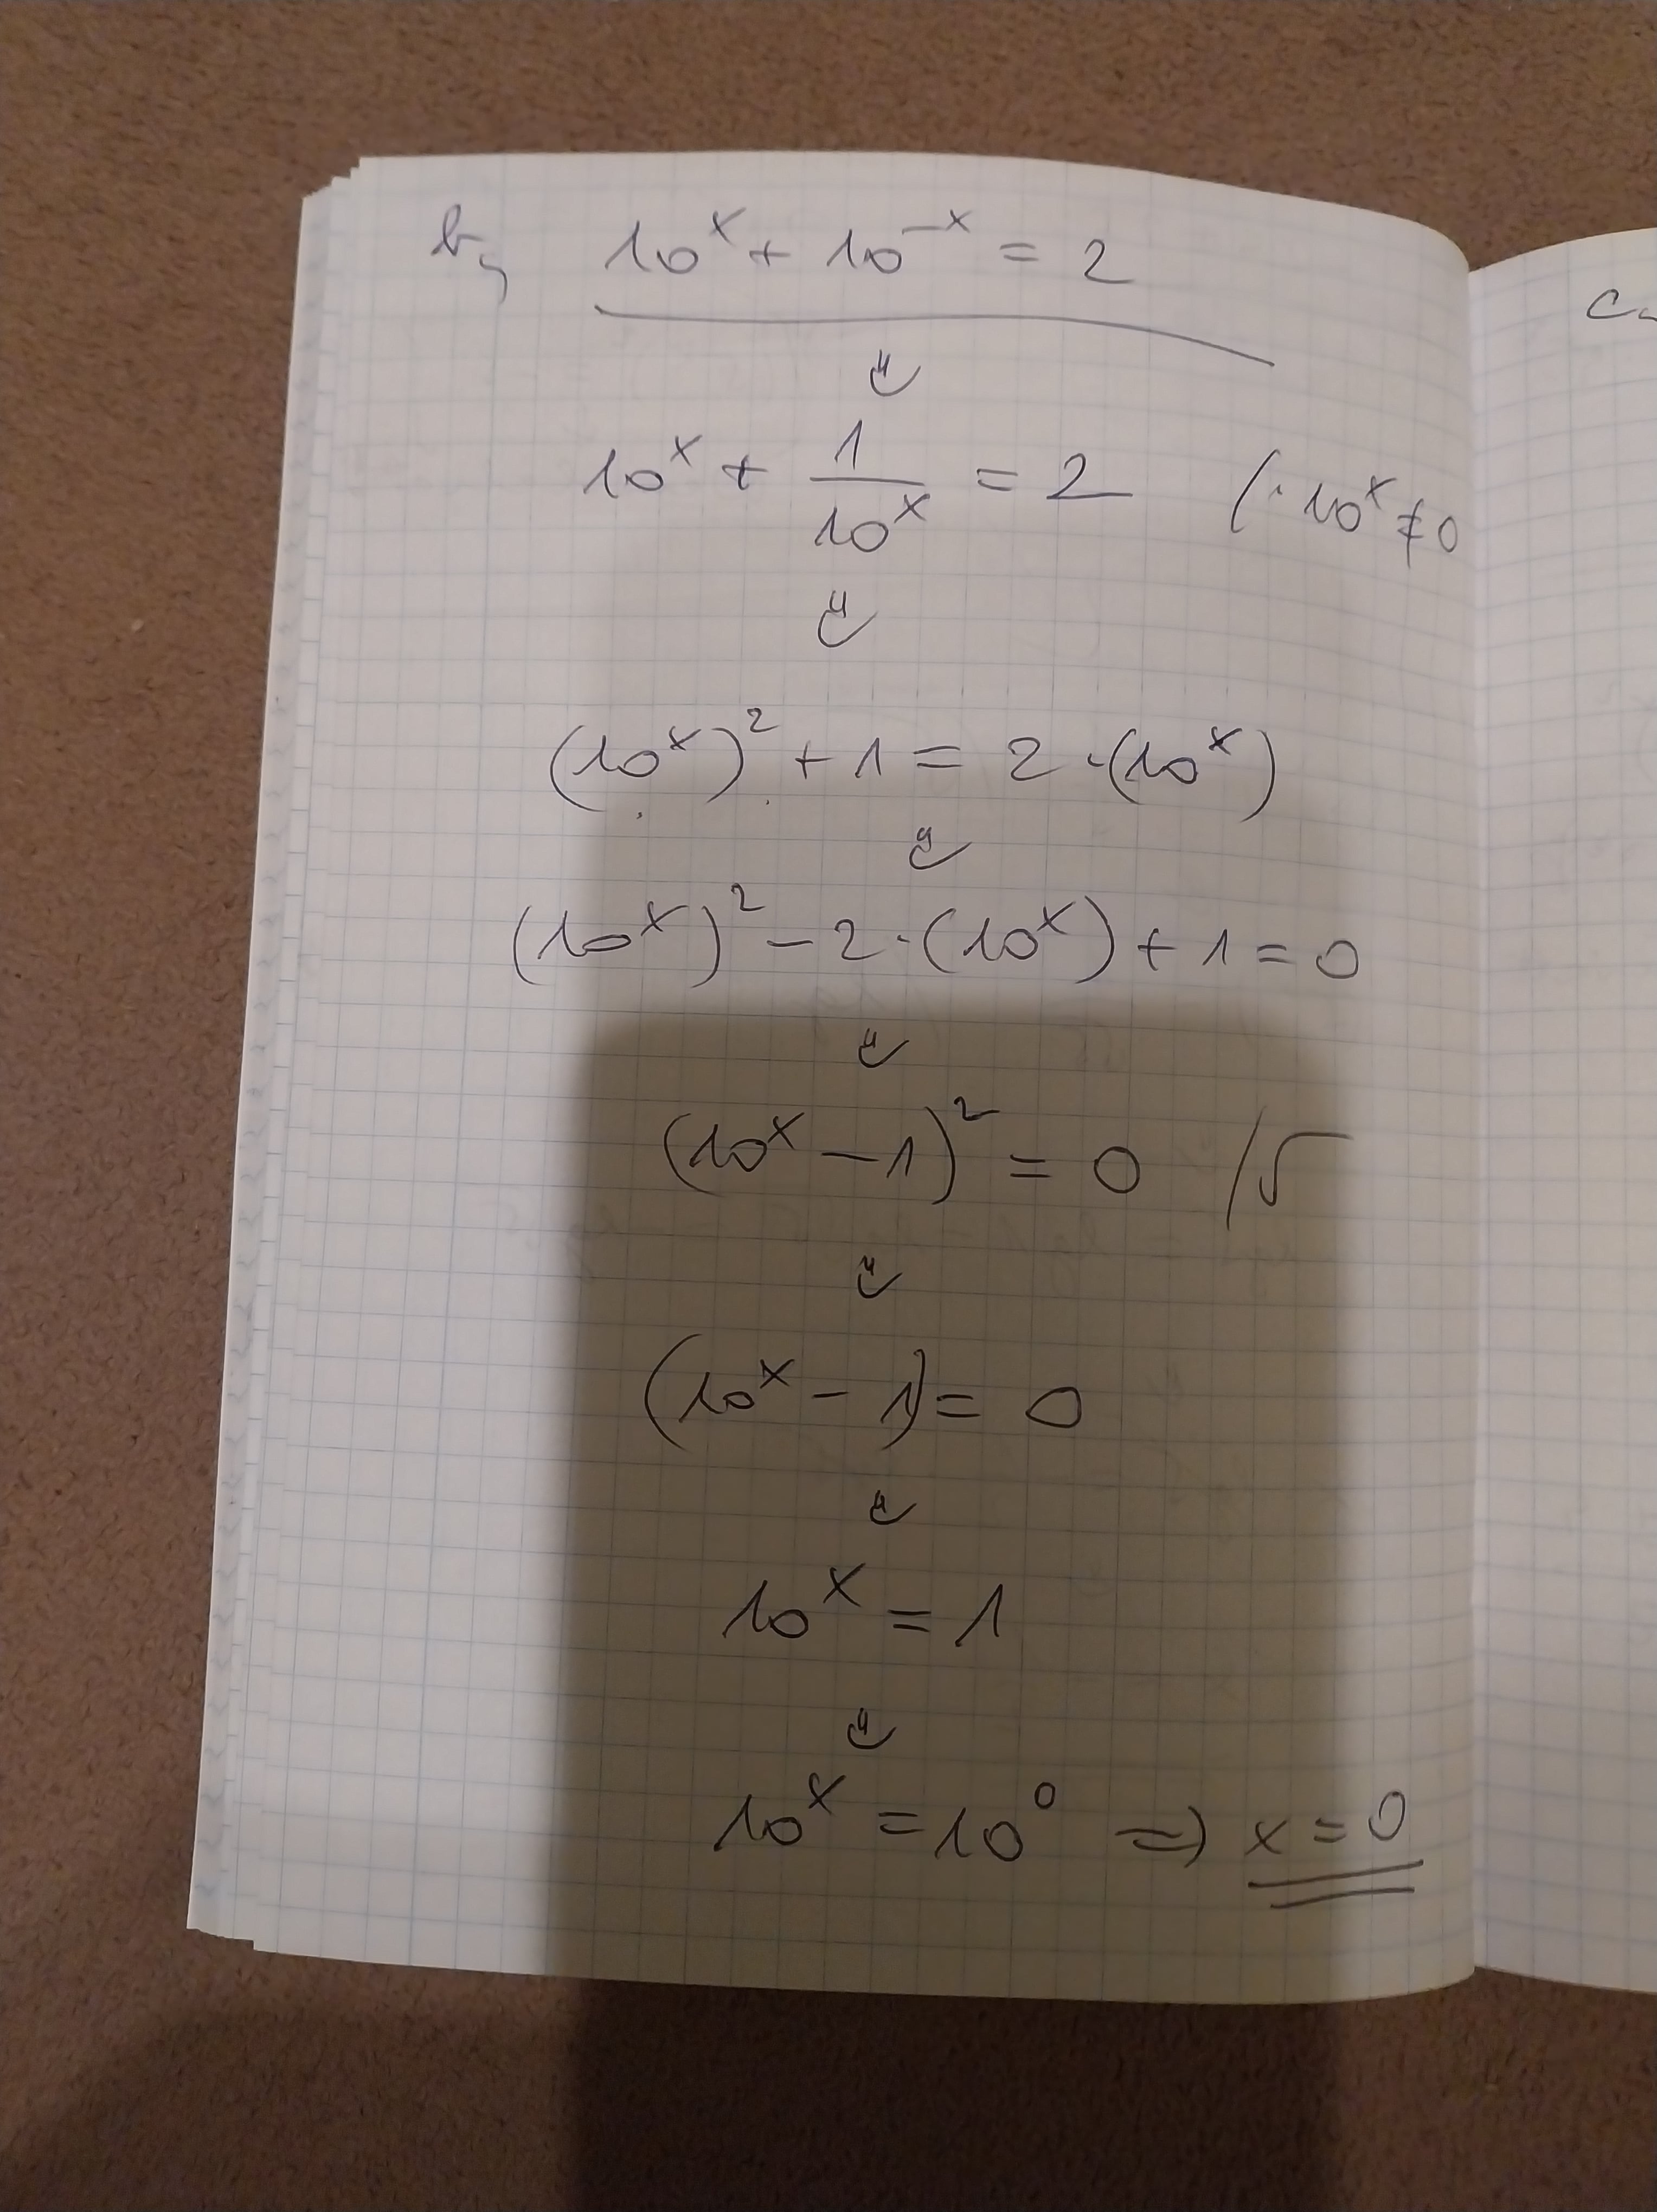 b, 10^x + 10^-x = 2
⇓
10^x + 1/10^x = 2 /· 10^x ≠ 0
⇓
(10^x)^2 + 1 = 2 · (10^x)
⇓
(10^x)^2 - 2 · (10^x) + 1 = 0
⇓
(10^x - 1)^2 = 0 /√
⇓
(10^x - 1) = 0
⇓
10^x = 1
⇓
10^x = 10^0 ⇒ x = 0